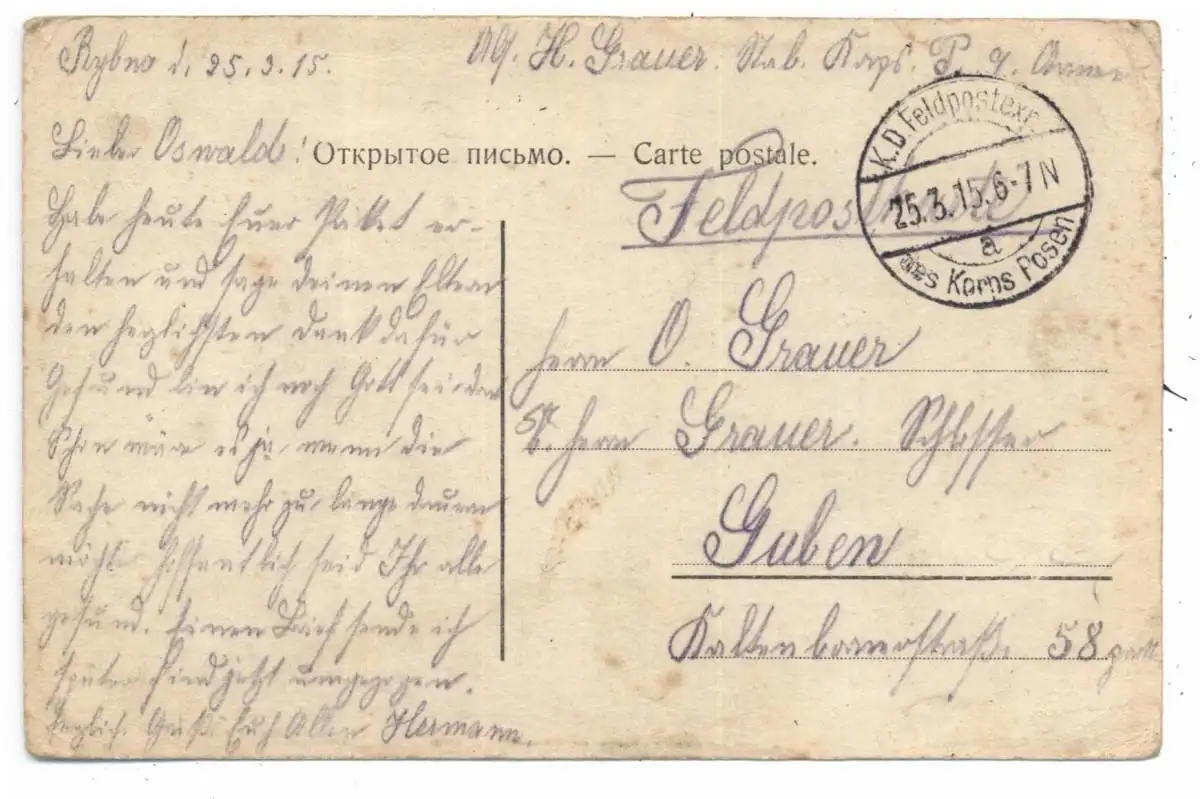 Rybno d. 25.3.15.
Abs. H. Grauer. Stab. Korps. P. 9. Armee
Lieber Oswald!
Открытое письмо. — Carte postale.
Feldpostkarte
K.D. Feldpostexp.
25.3.15.6-7N
a
des Korps Posen
Habe heute Euer Paket er-
halten und sage deinen Eltern
den herzlichsten Dank dafür
Gesund bin ich noch Gott sei Dank
Schön wäre es ja, wenn die
Sache nicht mehr zu lange dauern
möchte hoffentlich seid Ihr alle
gesund. Einen Brief sende ich
später sind jetzt umgezogen.
herzlich. Gruß Euch Allen Hermann.
Herrn O. Grauer
Herrn Grauer. Schlosser
Guben
58 part